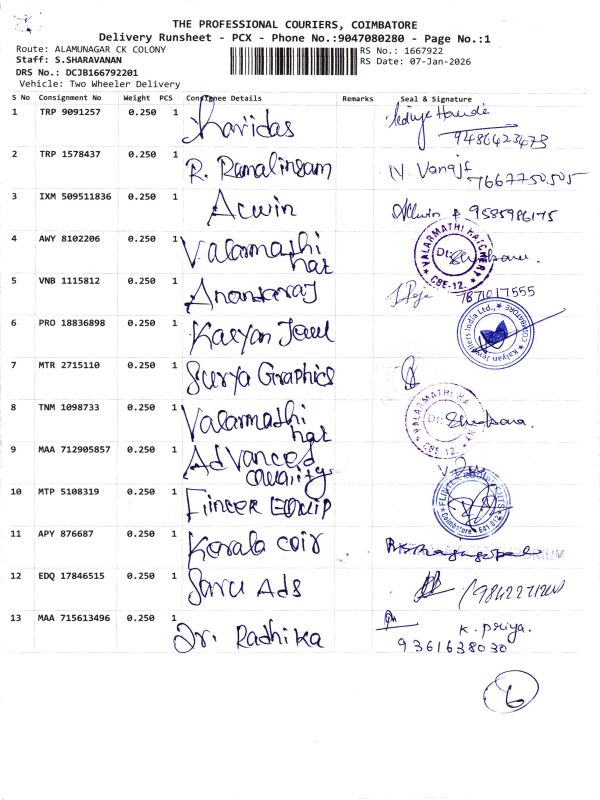 THE PROFESSIONAL COURIERS, COIMBATORE
Delivery Runsheet - PCX - Phone No.:9047080280 - Page No.:1
Route: ALAMUNAGAR CK COLONY
Staff: S.SHARAVANAN
DRS No.: DCJB166792201
Vehicle: Two Wheeler Delivery
RS No.: 1667922
RS Date: 07-Jan-2026
S No Consignment No Weight PCS Consignee Details Remarks Seal & Signature
1 TRP 9091257 0.250 1 Haridas 9486423473
2 TRP 1578437 0.250 1 R. Ramalingam N. Vanaja 7667750505
3 IXM 509511836 0.250 1 Acwin Allwin 9585986175
4 AWY 8102206 0.250 1 Valarmathi hat VALARMATHI HATCHERY CBE-12. Dt:
5 VNB 1115812 0.250 1 Anantaraj 7871017555
6 PRO 18836898 0.250 1 Kalyan Jewel Kalyan Jewellers India Ltd.,
7 MTR 2715110 0.250 1 Surya Graphics
8 TNM 1098733 0.250 1 Valarmathi hat VALARMATHI HA CBE-12 Dt:
9 MAA 712905857 0.250 1 Advanced Quality
10 MTP 5108319 0.250 1 Fincer EQUIP Coimbatore 641 012
11 APY 876687 0.250 1 Kerala coir
12 EDQ 17846515 0.250 1 Saru Ads
13 MAA 715613496 0.250 1 Dr. Radhika K. Priya.
9361638030
6